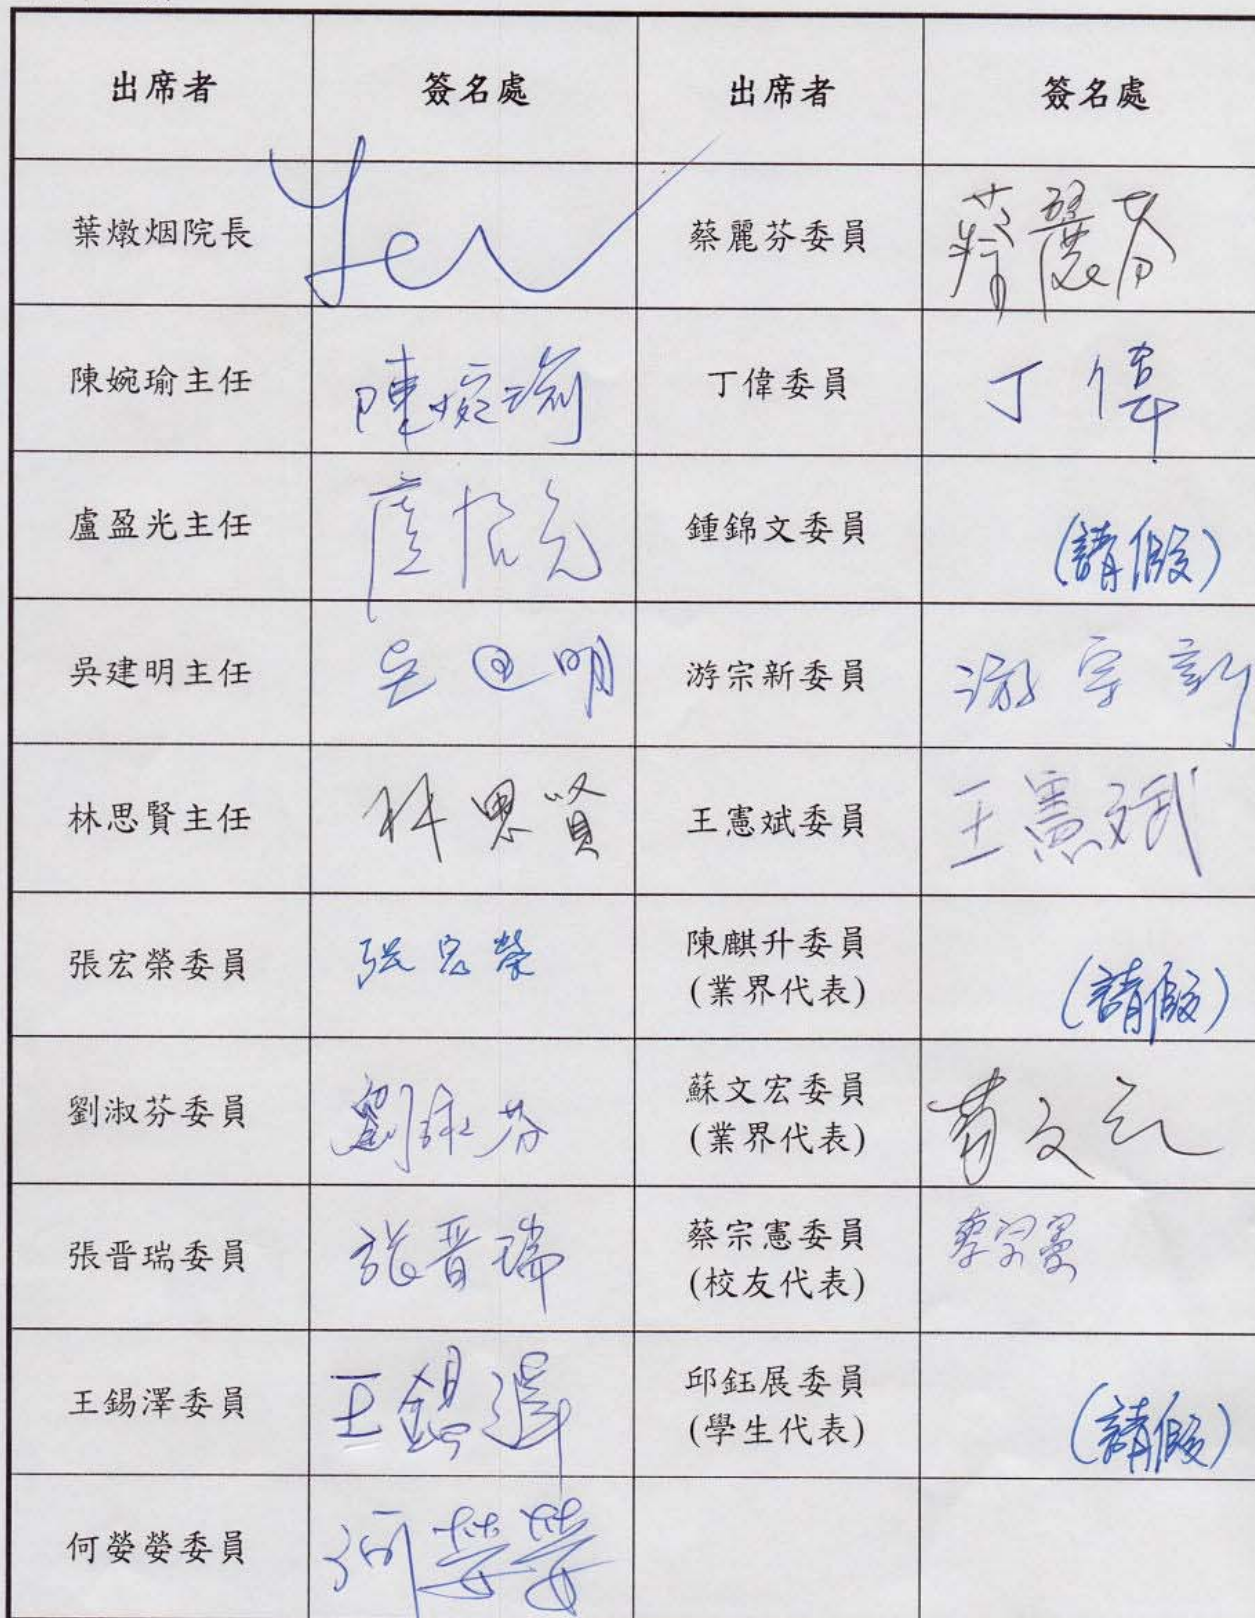 出席者 簽名處 出席者 簽名處
葉燉烟院長 Yen 蔡麗芬委員 蔡麗芬
陳婉瑜主任 陳婉瑜 丁偉委員 丁偉
盧盈光主任 鍾錦文委員 (請假)
吳建明主任 吳建明 游宗新委員 游宗新
林思賢主任 林思賢 王憲斌委員 王憲斌
張宏榮委員 張宏榮 陳麒升委員
(業界代表) (請假)
劉淑芬委員 劉淑芬 蘇文宏委員
(業界代表)
張晋瑞委員 張晋瑞 蔡宗憲委員
(校友代表) 蔡宗憲
王錫澤委員 王錫澤 邱鈺展委員
(學生代表) (請假)
何嫈嫈委員 何嫈嫈